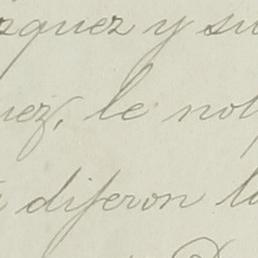 zquez y su
uez, le not
diferon la